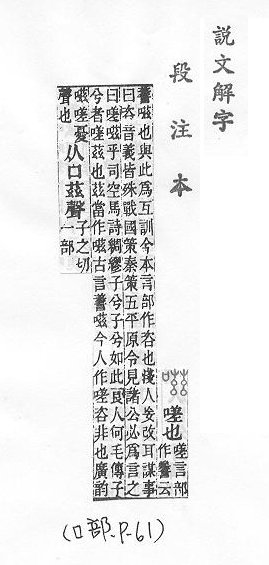 說文解字
段注本
嗟也
嗟言部
作云
嗞也與此爲互訓今本言部作咨也淺人妄改耳謀事
曰咨音義皆殊戰國策秦策五平原令見諸公必爲言之
曰嗟嗞乎司空馬詩綢繆子兮子兮如此良人何毛傳子
兮者嗟茲也茲當作嗞古言嗞今人作嗟咨非也廣韵
嗞嗟憂
聲也
从口茲聲
子之切
一部
(口部.P.61)